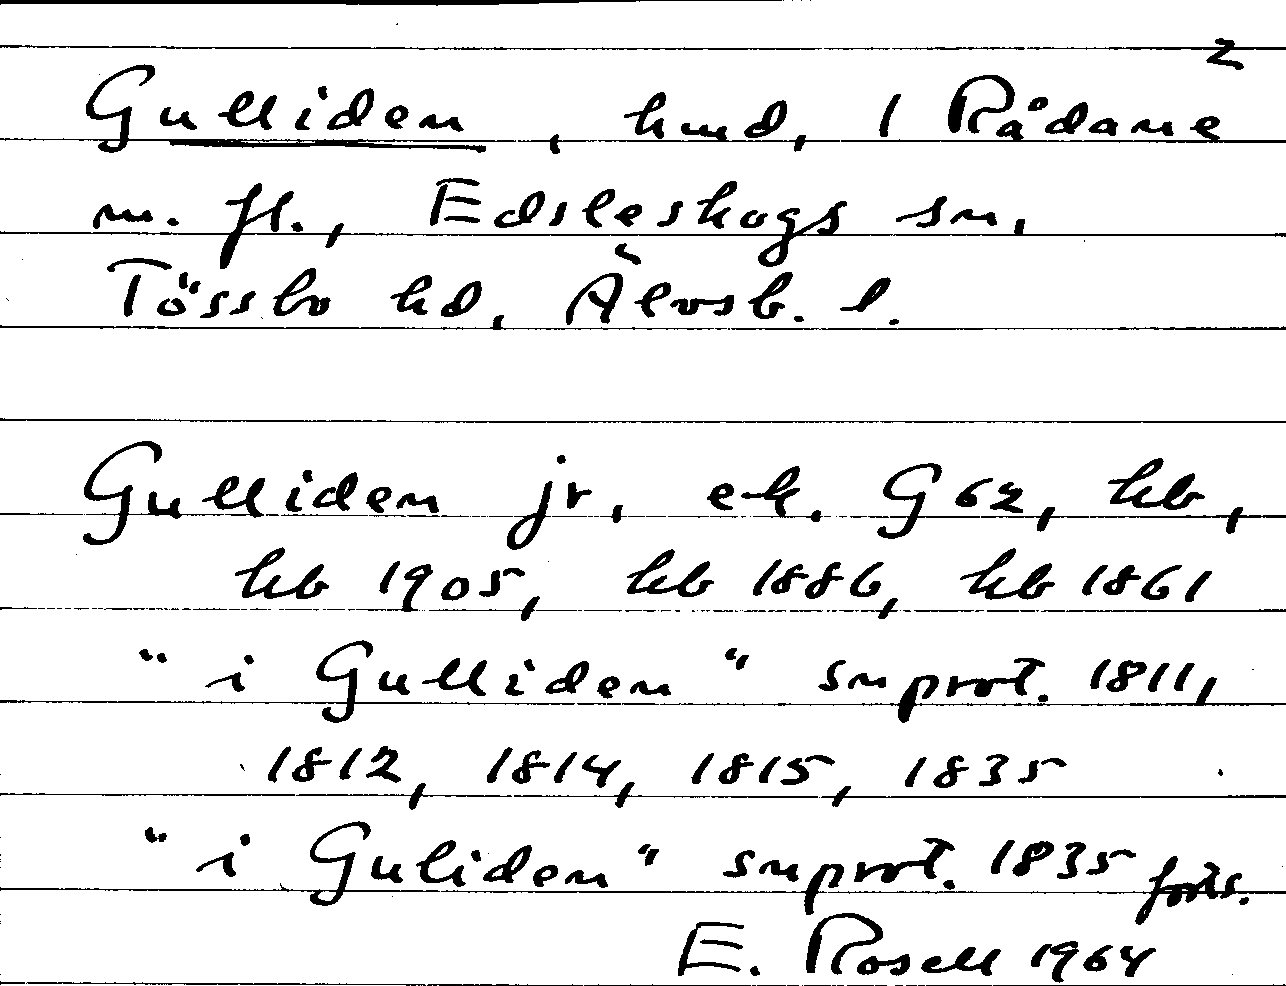 2
Gulliden, hmd, 1 Rådane
m. fl., Edsleskogs sn,
Tössbo hd, Älvsb. l.
Gulliden jr, ek. G 62, kb,
kb 1905, kb 1886, kb 1861
"i Gulliden" snprot. 1811,
1812, 1814, 1815, 1835
"i Guliden" snprot. 1835 forts.
E. Rosell 1964